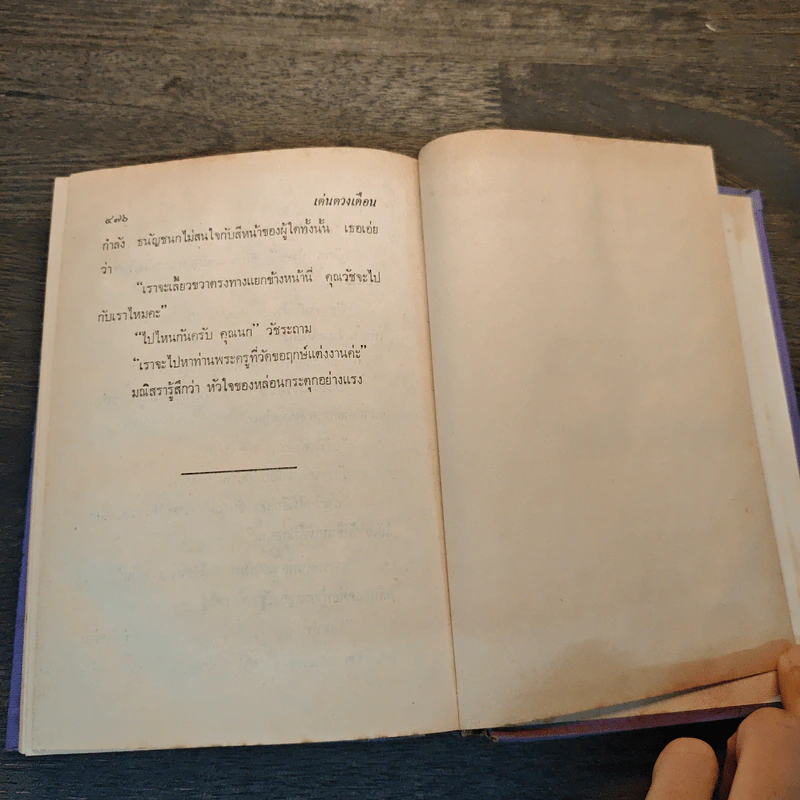 เด่นดวงเดือน
๔๗๖
กำลัง ธนัญชนกไม่สนใจกับสีหน้าของผู้ใดทั้งนั้น เธอเอ่ย
ว่า
“เราจะเลี้ยวขวาตรงทางแยกข้างหน้านี่ คุณวัชจะไป
กับเราไหมคะ”
“ไปไหนกันครับ คุณนก” วัชระถาม
“เราจะไปหาท่านพระครูที่วัดขอฤกษ์แต่งงานค่ะ”
มณิสรารู้สึกว่า หัวใจของหล่อนกระตุกอย่างแรง